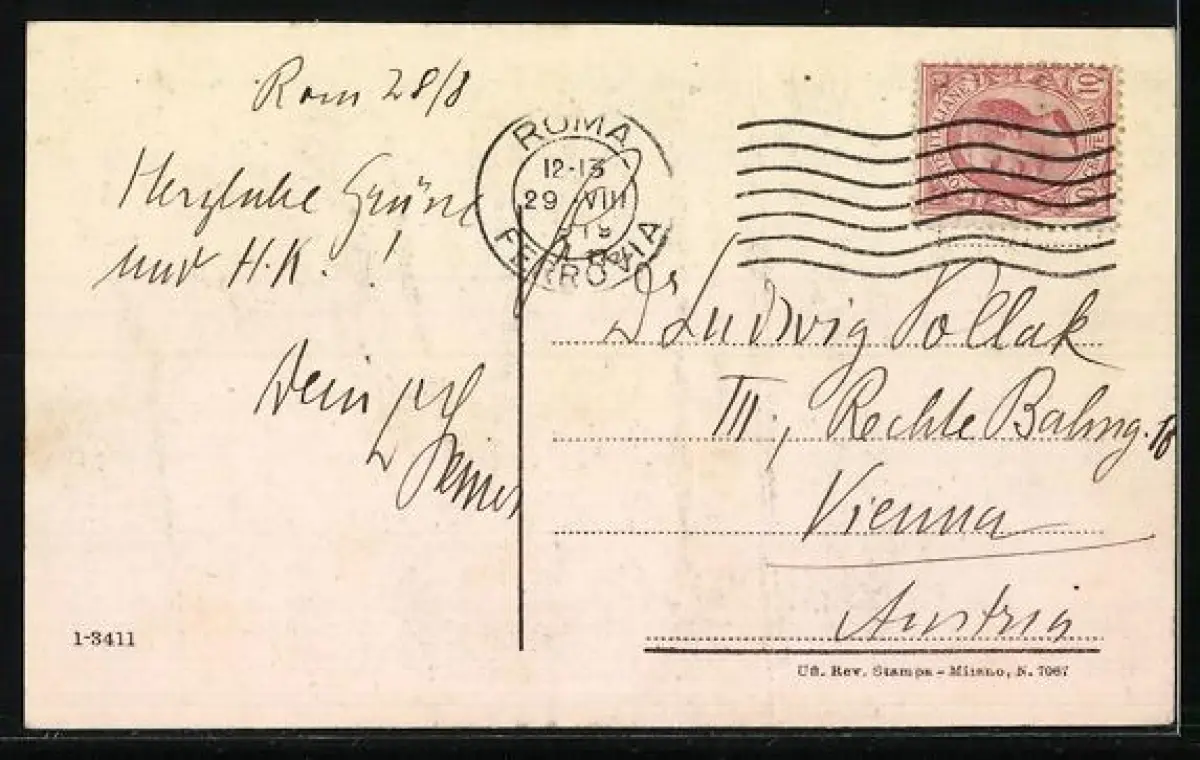 Rom 28/8
Herzliche Grüsse
und H.K.!
Dein
ROMA
12-13
29 VIII
FERROVIA
10
Dr Ludwig Pollak
III., Rechte Bahng. 18
Vienna
Austria
1-3411
Uff. Rev. Stampa - Milano, N. 7067